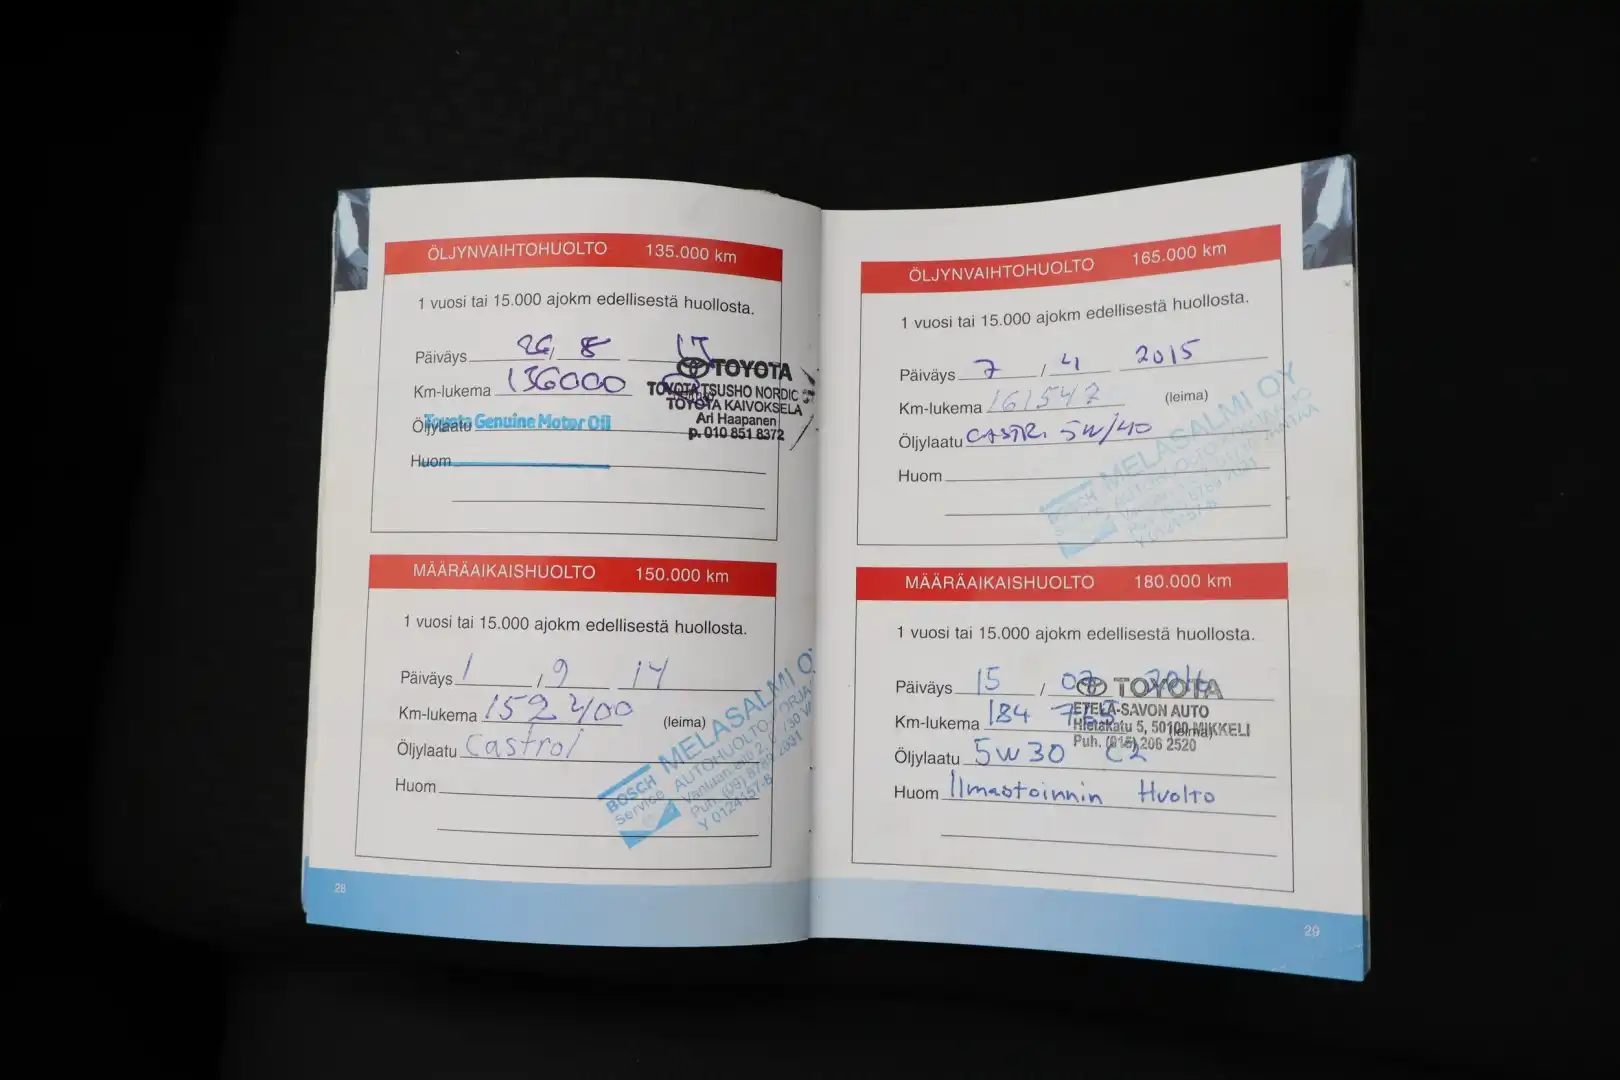 ÖLJYNVAIHTOHUOLTO 135.000 km
1 vuosi tai 15.000 ajokm edellisestä huollosta.
Päiväys 26, 8
Km-lukema 136000
Öljylaatu Toyota Genuine Motor Oil
Huom
TOYOTA
TOYOTA TSUSHO NORDIC
TOYOTA KAIVOKSELA
Ari Haapanen
p. 010 851 8372
MÄÄRÄAIKAISHUOLTO 150.000 km
1 vuosi tai 15.000 ajokm edellisestä huollosta.
Päiväys 1 / 9 14
Km-lukema 152400 (leima)
Öljylaatu Castrol
Huom
BOSCH
Service
MELASALMI OY
Y 0124157-8
28
ÖLJYNVAIHTOHUOLTO 165.000 km
1 vuosi tai 15.000 ajokm edellisestä huollosta.
Päiväys 7 / 4 2015
Km-lukema 161547 (leima)
Öljylaatu CASTR. 5W/40
Huom
BOSCH
MELASALMI OY
MÄÄRÄAIKAISHUOLTO 180.000 km
1 vuosi tai 15.000 ajokm edellisestä huollosta.
Päiväys 15 / 07
Km-lukema 184
Öljylaatu 5W30 C2
Huom Ilmastoinnin Huolto
TOYOTA
ETELÄ-SAVON AUTO
Hietakatu 5, 50100 MIKKELI
Puh. (015) 206 2520
29